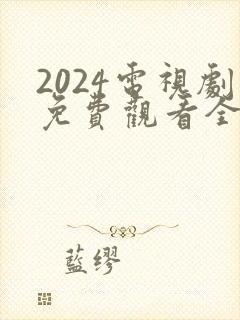 2024電視劇
免費觀看全
藍缪